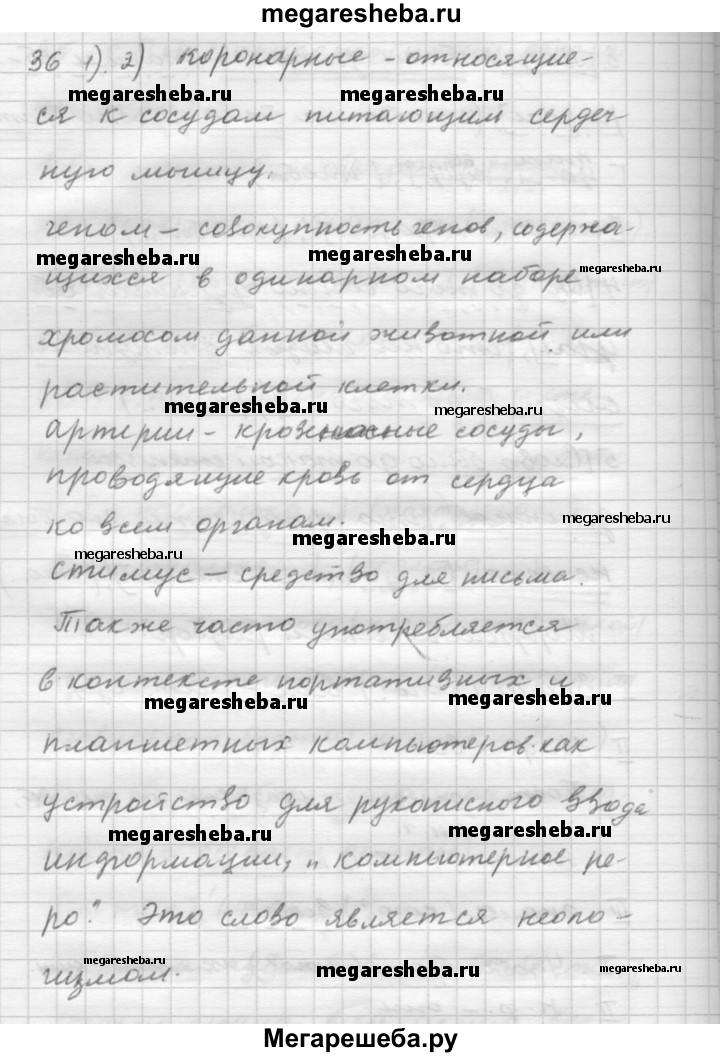 megaresheba.ru
36 1). 2) Коронарные - относящие-
megaresheba.ru megaresheba.ru
ся к сосудам питающим сердеч
ную мышцу.
геном - совокупность генов, содержа-
megaresheba.ru megaresheba.ru megaresheba.ru
щихся в одинарном наборе
хромосом данной животной или
растительной клетки.
megaresheba.ru megaresheba.ru
артерии - кровеносные сосуды,
проводящие кровь от сердца
ко всем органам.
megaresheba.ru megaresheba.ru megaresheba.ru
стимус - средство для письма.
Также часто употребляется
в контексте портативных и
megaresheba.ru megaresheba.ru
планшетных компьютеров как
устройство для рукописного ввода
megaresheba.ru megaresheba.ru
информации, "компьютерное пе-
ро." Это слово является неоло-
гизмом.
megaresheba.ru megaresheba.ru megaresheba.ru
Мегарешеба.ру